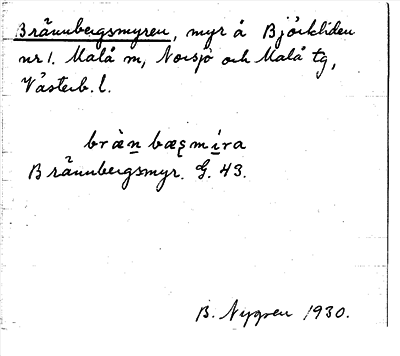 Brännbergsmyren, myr å Björkliden
nr 1. Malå sn, Norsjö och Malå tg,
Västerb. l.
bràn bæȩmíra
Brännbergsmyr. G. 43.
B. Nygren 1930.